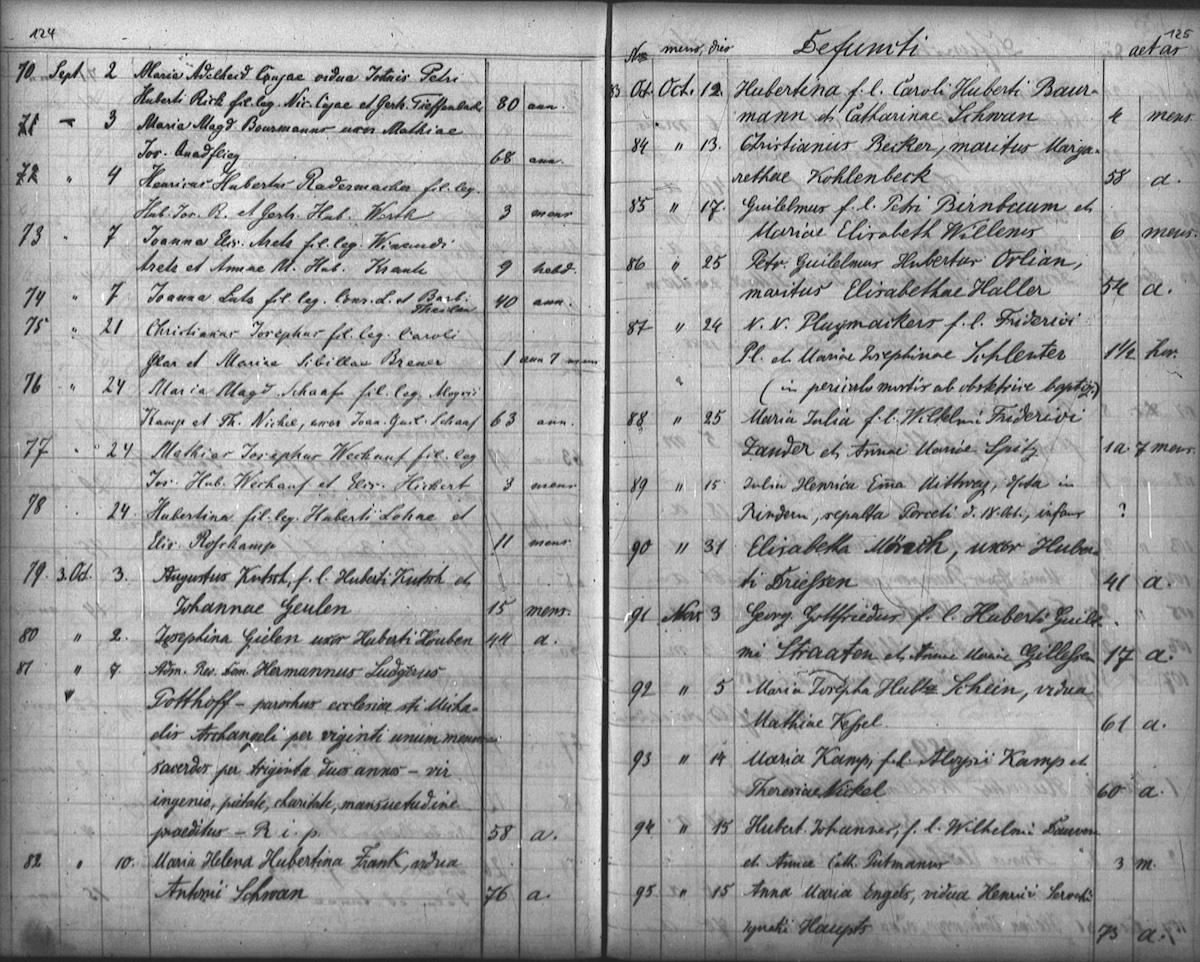 124
70 Sept 2 Maria Adelheid Cujae vidua Johnis Petri
Huberti Rick fil. leg. Nic. Cujae et Gert. Tieffenbach 80 ann.
71 – 3 Maria Magd Bourmanns uxor Mathiae
Jos. Quadflieg 68 ann.
72 " 4 Henricus Hubertus Radermacher fil. leg.
Hub. Jos. R. et Gert. Hub. Worth 3 mens
73 " 7 Joanna Elis. Aretz fil. leg. Winandi
Aretz et Annae M. Hub. Krantz 9 hebd.
74 " 7 Joanna Lutz fil. leg. Conr. L. et Barb.
40 ann.
75 " 21 Christianus Josephus fil. leg. Caroli
et Mariae Sibillae Breuer 1 ann 7 mens
76 " 24 Maria Magd Schaaf fil. leg. Aloysii
Kamp et Th. Nickel, uxor Joan. Guil. Schaaf 63 ann.
77 " 24 Mathias Josephus Weckauf fil. leg
Jos. Hub. Weckauf et Elis. Hickert 3 mens
78 . 24 Hubertina fil. leg. Huberti Lohne et
Elis. Roskamp 11 mens
79 3. Oct. 3. Augustus Kutsch, f. l. Huberti Kutsch et
Johannae Geulen 15 mens.
80 " 2. Josephina Gielen uxor Huberti Houben 44 a.
81 " 7 Adm. Rev. Dom. Hermannus Ludgerus
Potthoff – parochus ecclesiae sti Micha-
elis Archangeli per viginti unum menses
sacerdos per triginta duos annos – vir
ingenio, pietate, charitate, mansuetudine
praeditus – R i p. 58 a.
82 " 10. Maria Helena Hubertina Frank, vidua
Antonii Schwan 76 a.
125
No mens. dies Defuncti aetas
83 Oct. Oct. 12. Hubertina f. l. Caroli Huberti Baur-
mann et Catharinae Schwan 4 mens
84 " 13. Christianus Becker, maritus Marga-
rethae Kohlenbeck 58 a.
85 " 17. Guilelmus f. l. Petri Birnbaum et
Mariae Elisabeth Willems 6 mens.
86 " 25 Petr. Guilelmus Hubertus Orlian,
maritus Elisabethae Haller 54 a.
87 " 24 N. N. Pluymackers f. l. Friderici
Pl. et Mariae Josephinae Schlenter 1 1/2 hor.
(in periculo mortis ab obstetrice baptiz.)
88 " 25 Maria Julia f. l. Wilhelmi Friderici
Zander et Annae Mariae Spitz 1 a. 7 mens.
89 " 15 Julia Henrica Emma in
Rindern, sepulta Porceti d. 18. Oct., infans ?
90 " 31 Elisabetha uxor Huber-
ti Driessen 41 a.
91 Nov. 3 Georg. Gottfriedus f. l. Huberti Guilel-
mi Straaten et Annae Mariae Gillessen 17 a.
92 " 5 Maria Josepha Schein, vidua
Mathiae Kessel 61 a.
93 " 14 Maria Kamp, f. l. Aloysii Kamp et
Theresiae Nickel 60 a.
94 " 15 Hubert. Johannes, f. l. Wilhelmi Dauven
et Annae Cath. Putmanns 3 m.
95 " 15 Anna Maria Engels, vidua Henrici
Haupts 73 a.